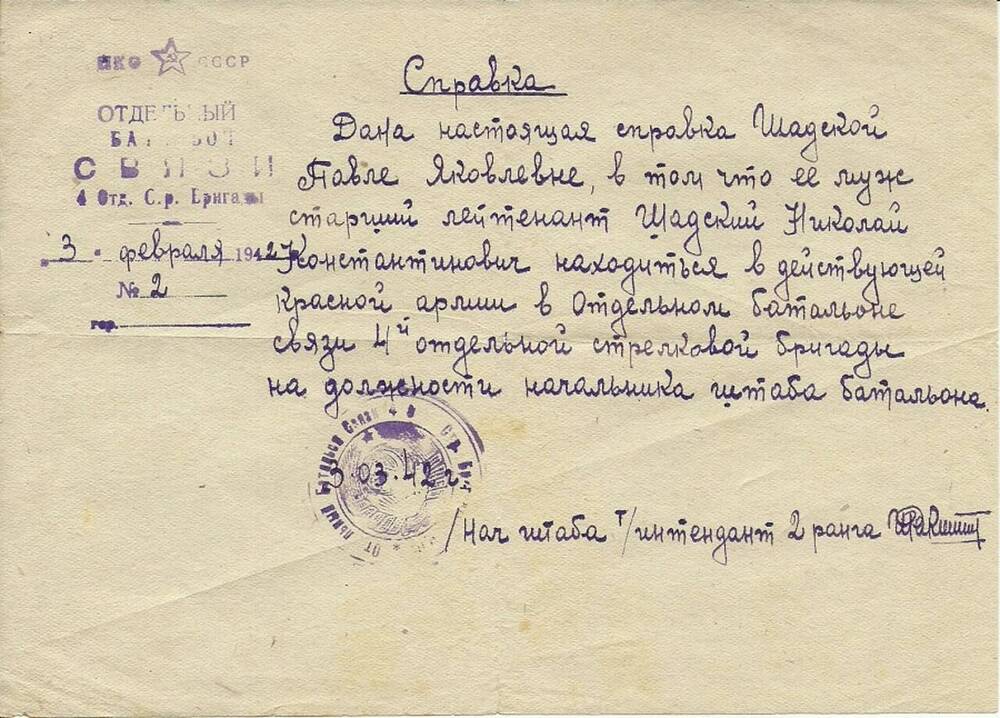 НКО СССР
ОТДЕЛЬНЫЙ
БАТАЛЬОН
СВЯЗИ
4 Отд. С.р. Бригады
"3" февраля 1942 г.
№ 2
гор.
Справка
Дана настоящая справка Шадской
Павле Яковлевне, в том что ее муж
старший лейтенант Шадский Николай
Константинович находиться в действующей
Красной армии в Отдельном батальоне
связи 4й отдельной стрелковой бригады
на должности начальника штаба батальона.
3.03.42 г.
/Нач штаба т/интендант 2 ранга